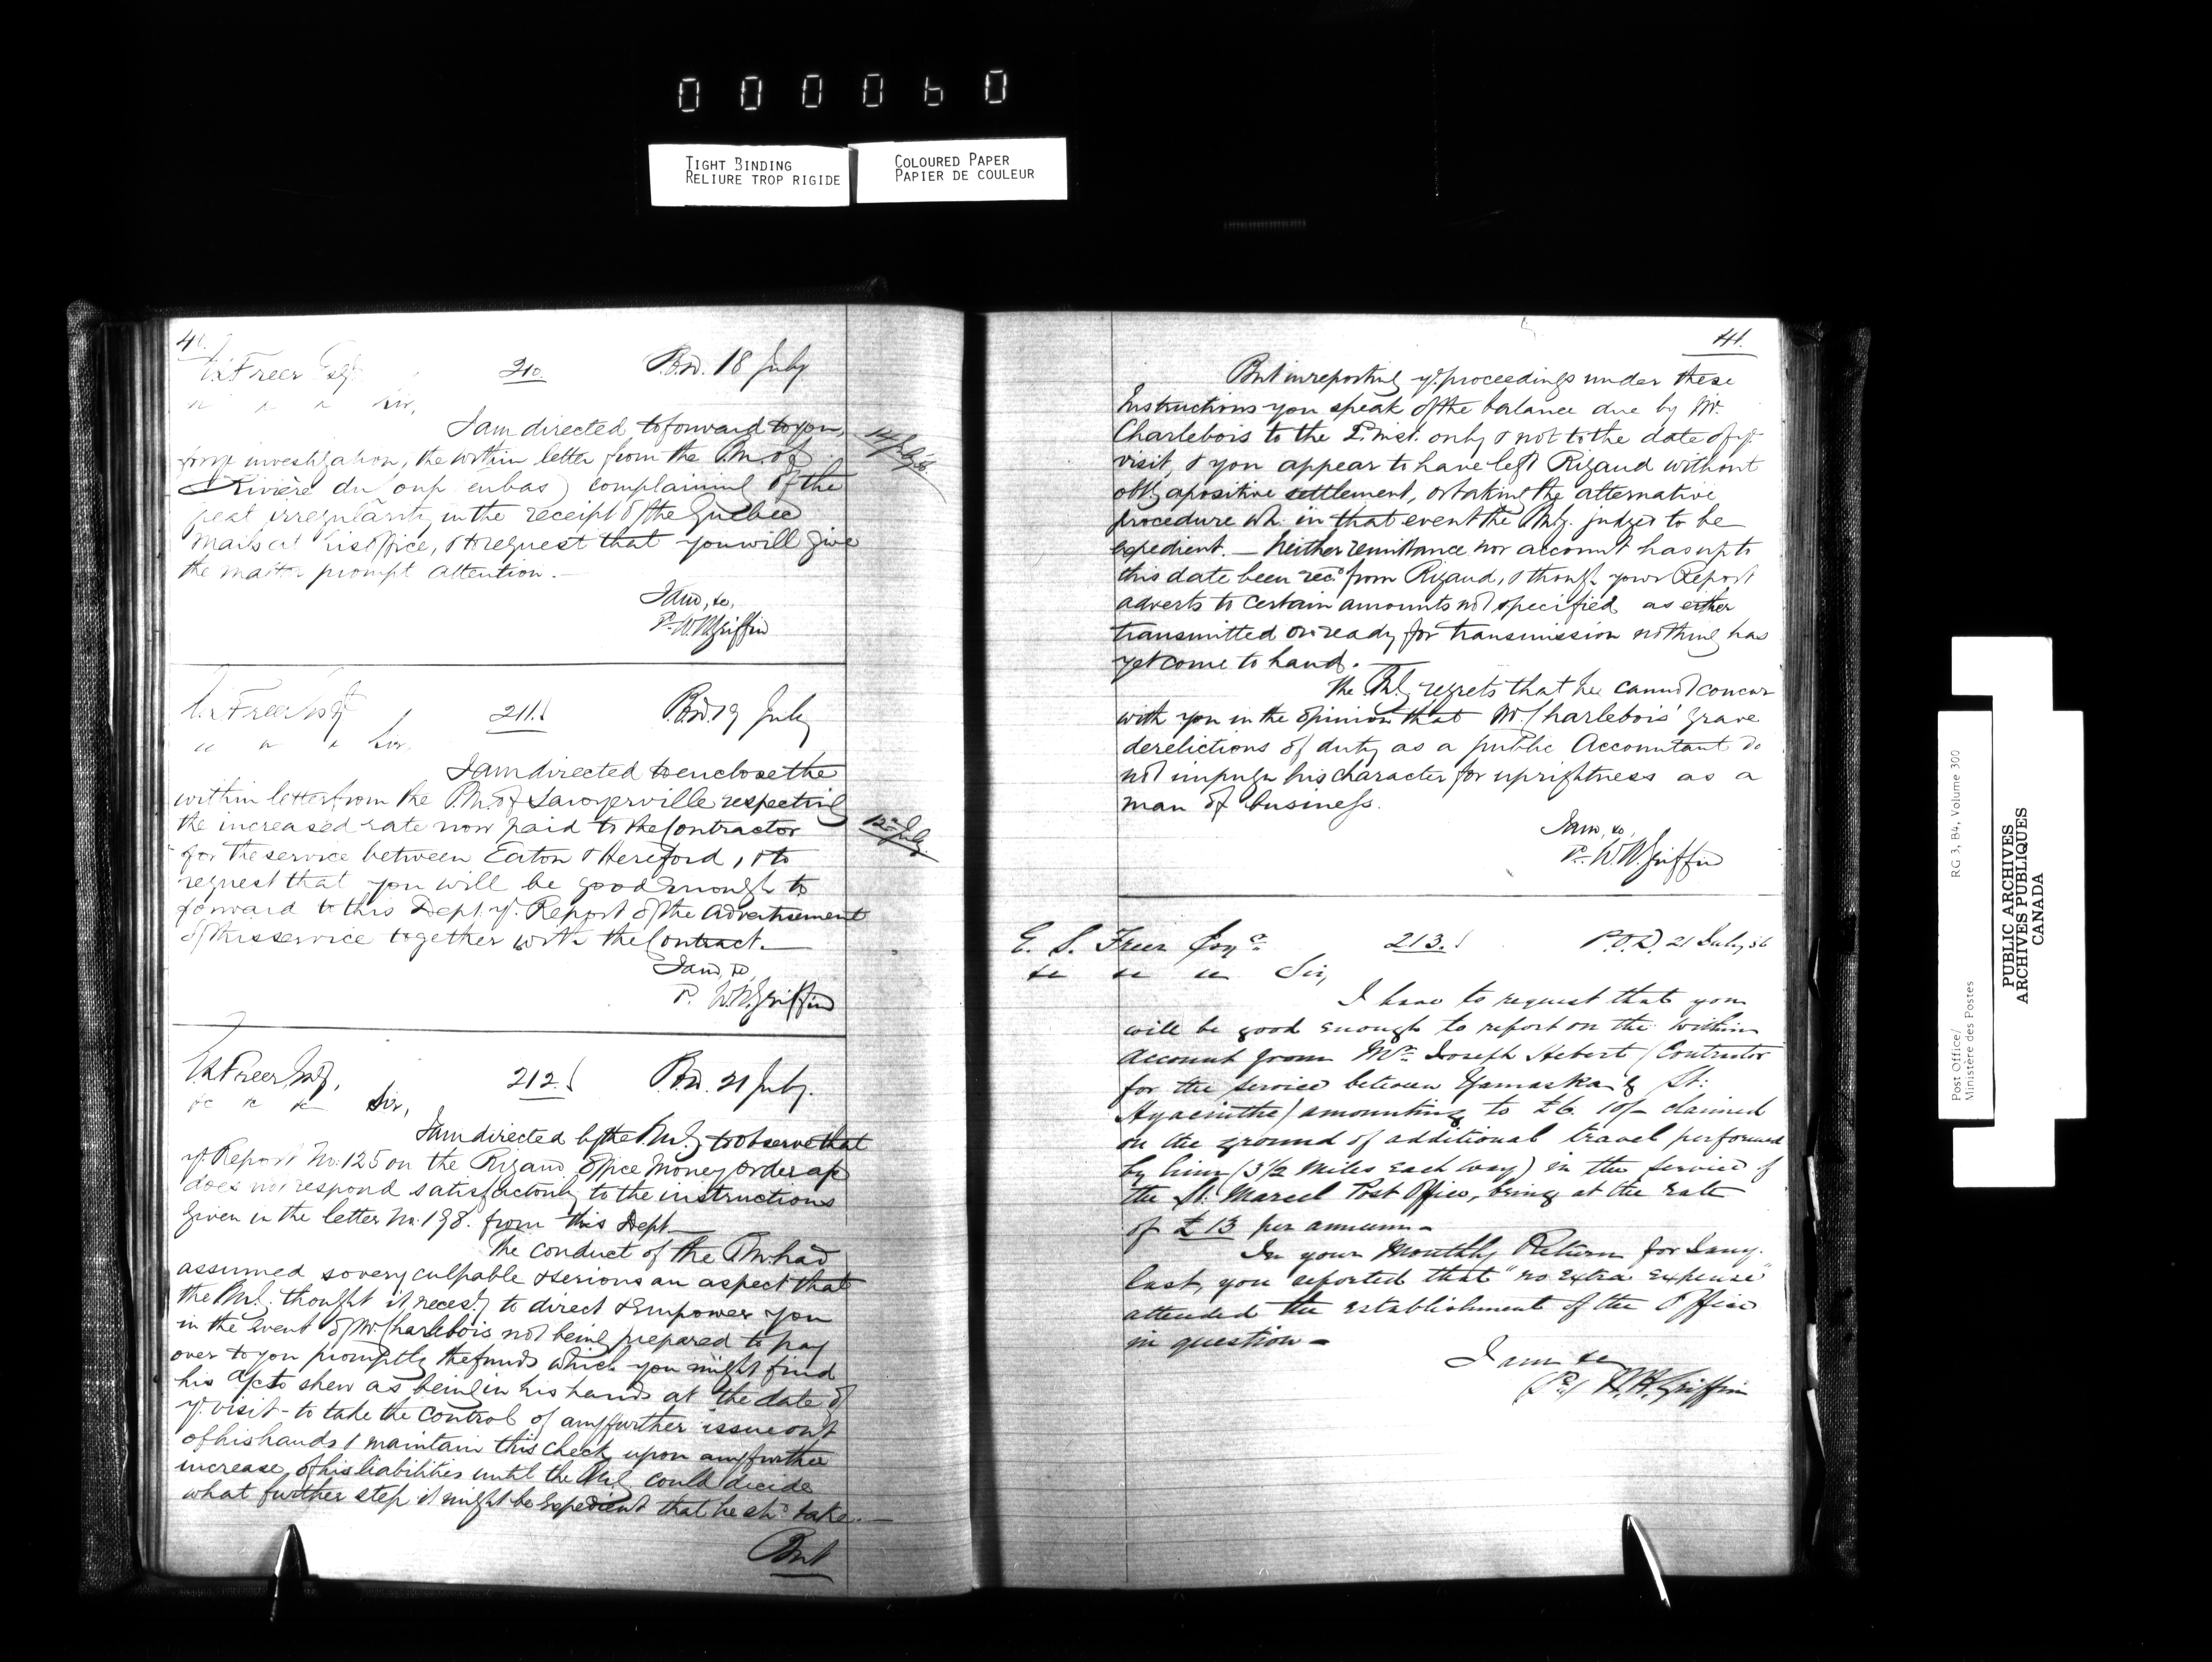 000060
TIGHT BINDING
RELIURE TROP RIGIDE
COLOURED PAPER
PAPIER DE COULEUR
40.
Freer Esq. 210. P.O.D. 18 July
" " " Sir,
I am directed to forward to you,
for yr investigation, the within letter from the P.M. of
Rivière du Loup (en bas) complaining of the
great irregularity in the receipt of the Quebec
Mails at his office, & to request that you will give
the matter prompt attention.—
I am, &c,
P. W.H. Griffin
Freer Esq. 211. P.O.D. 19 July
" " " Sir,
I am directed to enclose the
within letter from the P.M. of Sawyerville respecting
the increased rate now paid to the Contractor
for the service between Eaton & Hereford, & to
request that you will be good enough to
forward to this Dept. yr. Report of the advertisement
of this service together with the Contract.—
I am, &c
P. W.H. Griffin
12 July
Freer Esq, 212. P.O.D. 21 July.
&c &c &c Sir,
I am directed by the P.M.G. to observe that
yr. Report No. 125 on the Rigaud Office Money Order a/c
does not respond satisfactorily to the instructions
given in the letter No. 198. from this Dept.—
The conduct of the P.M. had
assumed so very culpable & serious an aspect that
the P.M.G. thought it necesy. to direct & empower you
in the event of Mr. Charlebois not being prepared to pay
over to you promptly the funds which you might find
his a/cs to shew as being in his hands at the date of
yr. visit - to take the control of any further issue out
of his hands & maintain this check upon any further
increase of his liabilities until the P.M.G. could decide
what further step it might be expedient that he shd. take.—
But
41.
But in reporting yr. proceedings under these
Instructions you speak of the balance due by Mr.
Charlebois to the inst. only & not to the date of yr.
visit, & you appear to have left Rigaud without
obtg. a positive settlement, or taking the alternative
procedure wh. in that event the P.M.G. judged to be
expedient.— Neither remittance nor account has up to
this date been recd. from Rigaud, & though your Report
adverts to certain amounts not specified as either
transmitted or ready for transmission nothing has
yet come to hand.
The P.M.G. regrets that he cannot concur
with you in the opinion that Mr. Charlebois' grave
derelictions of duty as a public Accountant do
not impugn his character for uprightness as a
man of business.
I am, &c,
P. W.H. Griffin
E. S. Freer Esqre. 213. P.O.D. 21 July, 56
&c &c &c Sir,
I have to request that you
will be good enough to report on the within
account from Mr. Joseph Hebert (Contractor
for the service between Yamaska & St:
Hyacinthe) amounting to £6. 10/- claimed
on the ground of additional travel performed
by him (3½ miles each way) in the service of
the St. Marcel Post Office, being at the rate
of £13 per annum -
In your Monthly Return for Jany.
last, you reported that "no extra expense"
attended the establishment of the Office
in question -
I am &c
(P.) W.H. Griffin
Post Office/ RG 3, B4, Volume 300
Ministère des Postes
PUBLIC ARCHIVES
ARCHIVES PUBLIQUES
CANADA